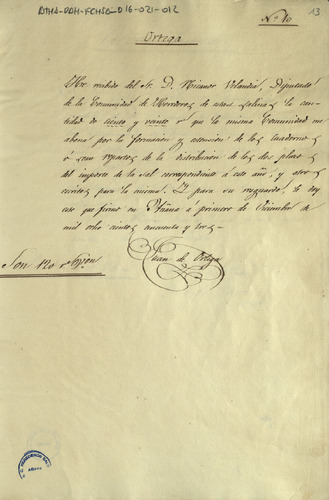 ATHA-DAH-FCHSA-016-021-012
Nº 10
13
Ortega
He recibido del Sr. D. Nicanor Velandia, Diputado
de la Comunidad de Herederos de estas salinas la can-
tidad de ciento y veinte rs. que la misma Comunidad me
abona por la formacion y estencion de los cuadernos
ó sean repartos de la distribucion de los dos plazos
del importe de la Sal correspondiente á este año, y otros
escritos para la misma. Y para su resguardo, le doy
este que firmo en Añana á primero de Diciembre de
mil ocho cientos cincuenta y tres,
Juan de Ortega
Son 120 rs. vn.
AÑANA